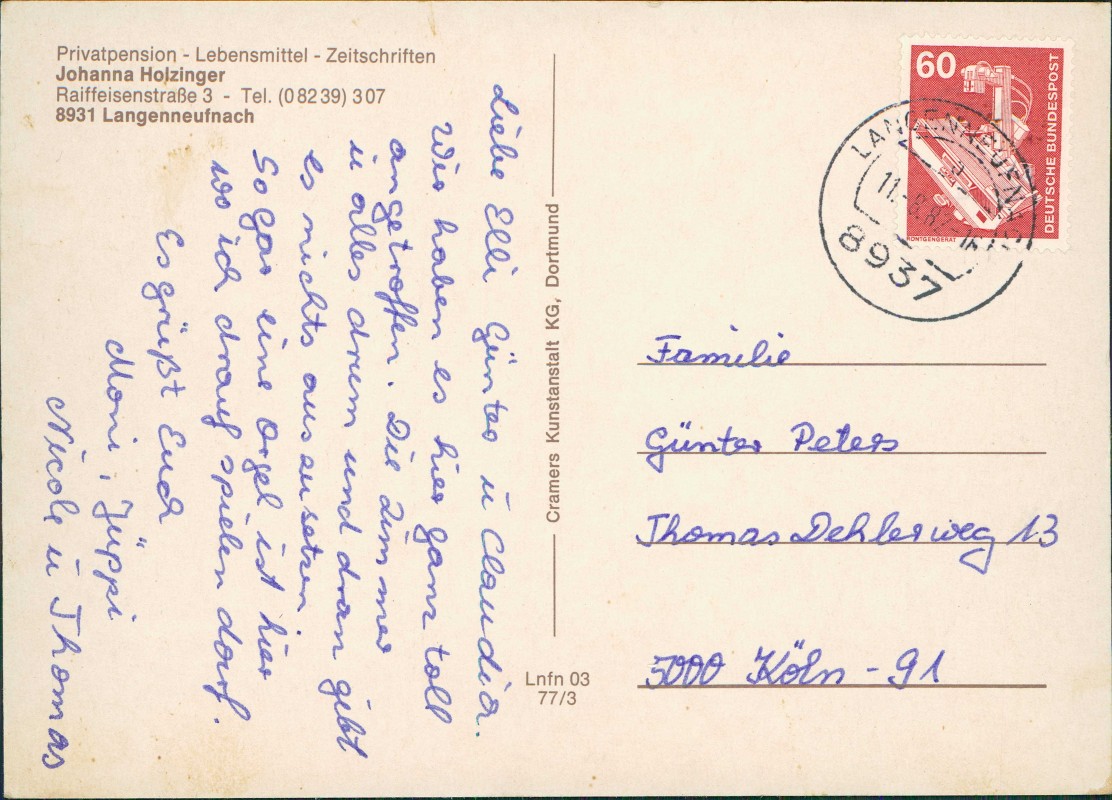 Privatpension - Lebensmittel - Zeitschriften
Johanna Holzinger
Raiffeisenstraße 3 - Tel. (08239) 307
8931 Langenneufnach
Liebe Elli Günter u Claudia.
Wir haben es hier ganz toll
angetroffen. Die Zimmer
u alles drum und dran gibt
es nichts auszusetzen
Sogar eine Orgel ist hier
wo ich drauf spielen darf.
Es grüßt Euch
Moni, Jüppi
Nicole u Thomas
Cramers Kunstanstalt KG, Dortmund
Lnfn 03
77/3
60
DEUTSCHE BUNDESPOST
RÖNTGENGERÄT
LANGENNEUFNACH
11.-8.8
8937
Familie
Günter Peters
Thomas Dehlerweg 13
5000 Köln - 91